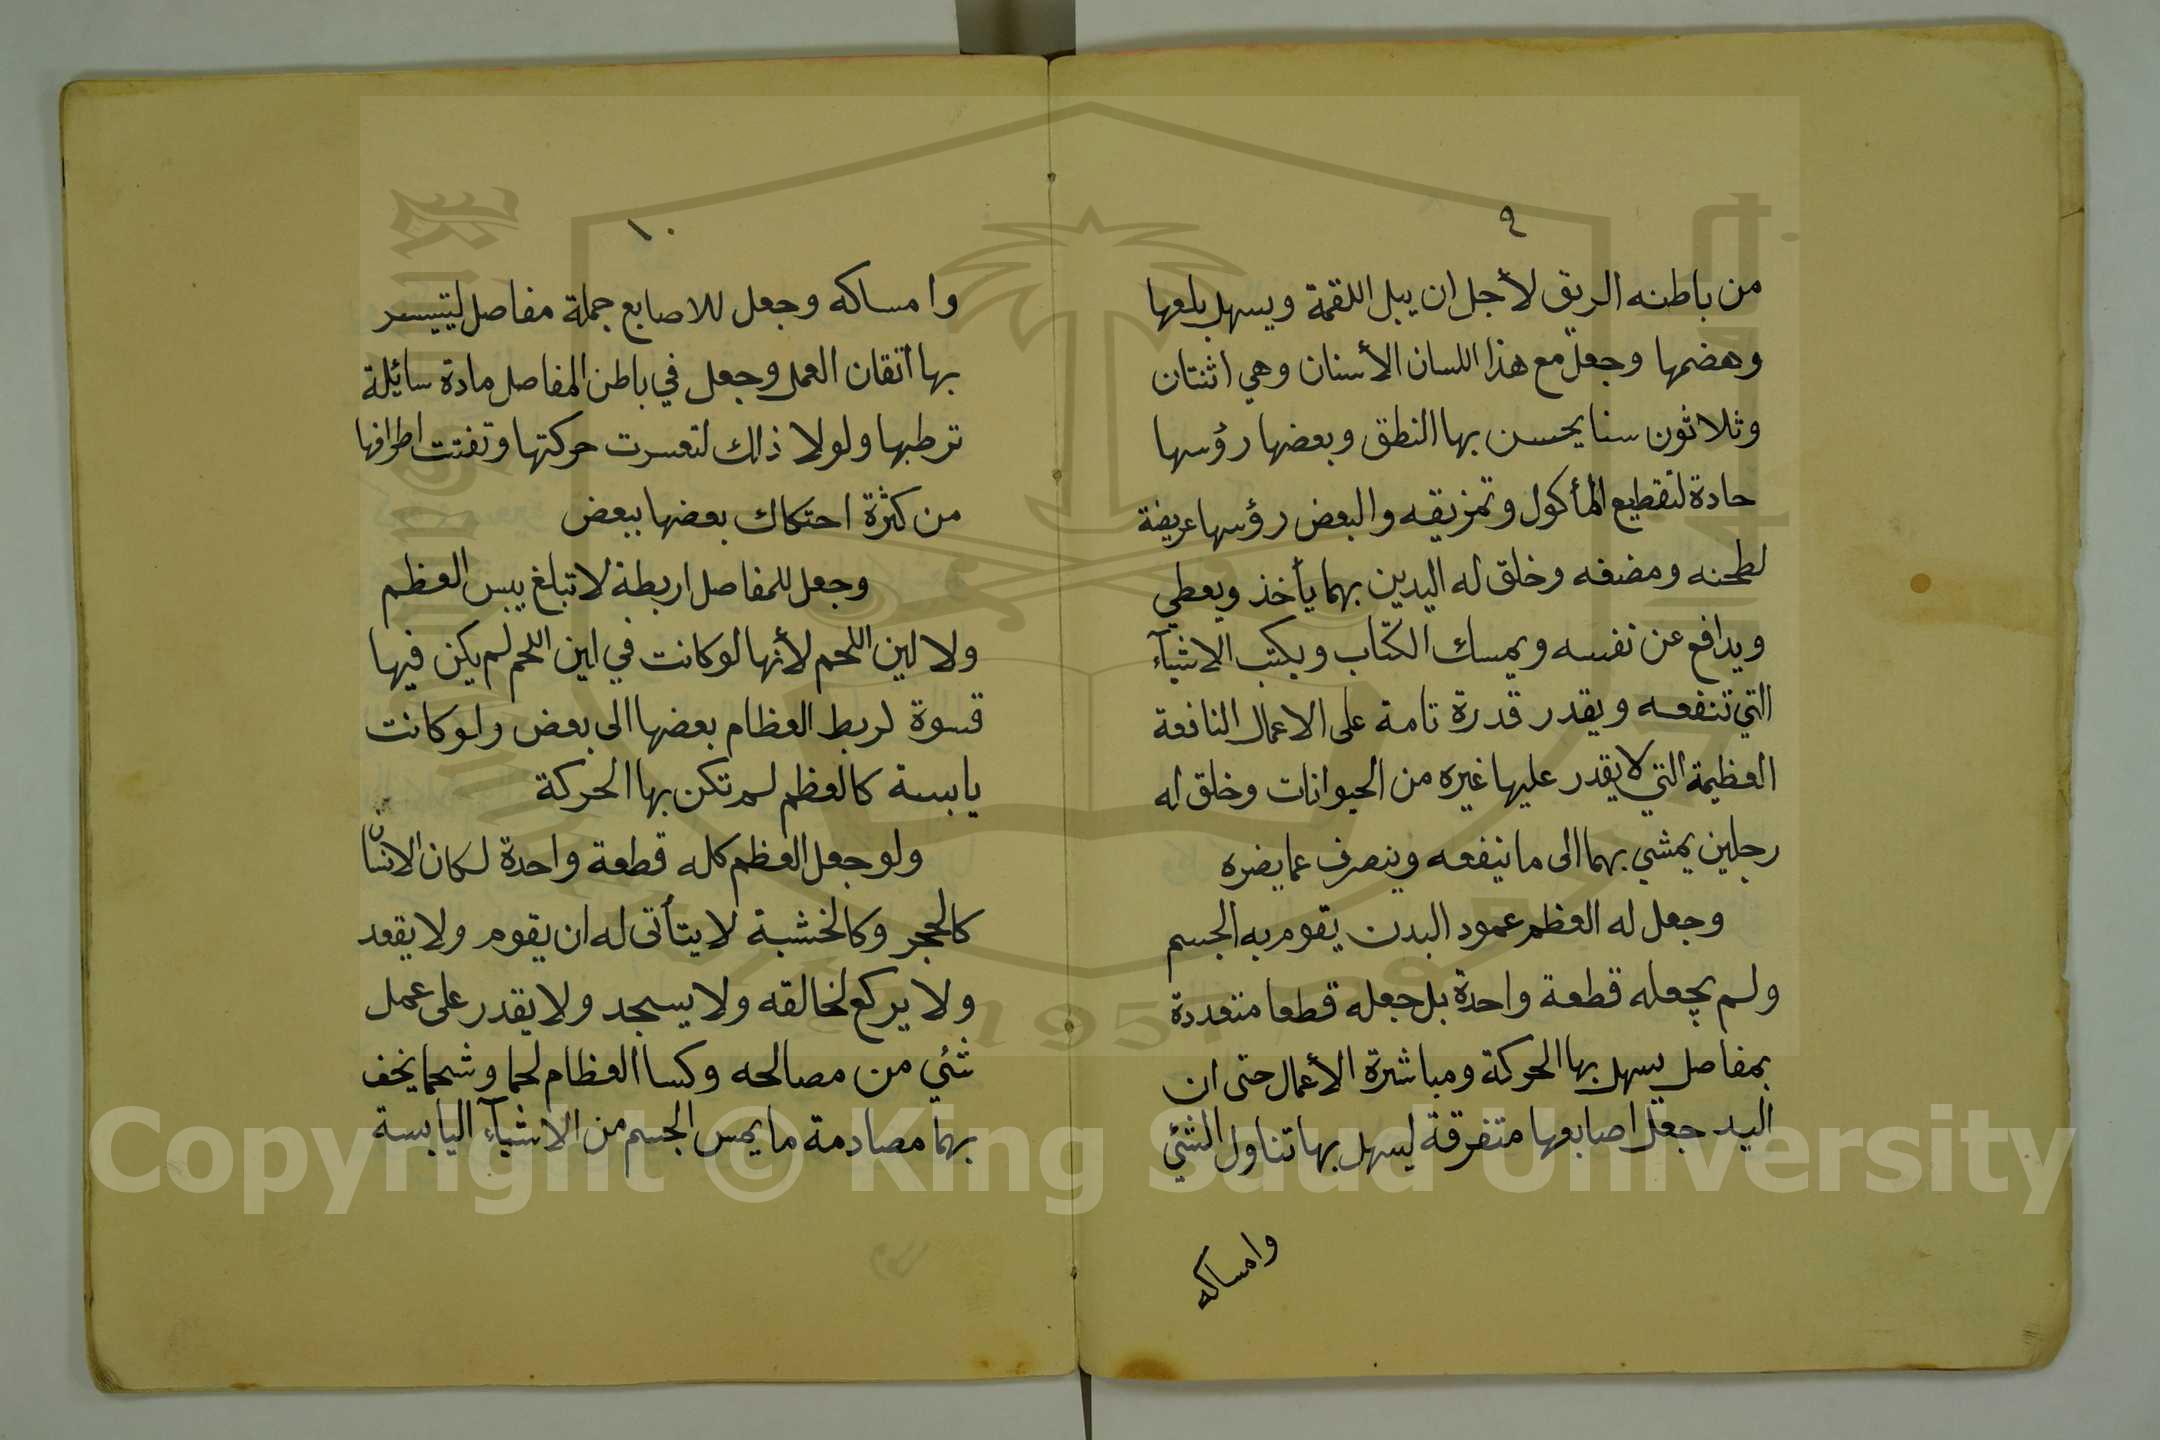 ٩
من باطنه الريق لأجل ان يبل اللقمة ويسهل بلعها
وهضمها وجعل مع هذا اللسان الأسنان وهي اثنتان
وثلاثون سنا يحسن بها النطق وبعضها رؤسها
حادة لتقطيع المأكول وتمزيقه والبعض رؤسها عريضة
لطحنه ومضغه وخلق له اليدين بهما يأخذ ويعطي
ويدافع عن نفسه ويمسك الكتاب ويكتب الاشيآء
التي تنفعه ويقدر قدرة تامة على الاعمال النافعة
العظيمة التي لا يقدر عليها غيره من الحيوانات وخلق له
رجلين يمشي بهما الى ما ينفعه وينصرف عما يضره
وجعل له العظم عمود البدن يقوم به الجسم
ولم يجعله قطعة واحدة بل جعله قطعا متعددة
بمفاصل يسهل بها الحركة ومباشرة الأعمال حتى ان
اليد جعل اصابعها متفرقة ليسهل بها تناول الشئي
وامساكه
١٠
وامساكه وجعل للاصابع جملة مفاصل ليتيسر
بها اتقان العمل وجعل في باطن المفاصل مادة سائلة
ترطبها ولولا ذلك لتعسرت حركتها وتفتت اطرافها
من كثرة احتكاك بعضها ببعض
وجعل للمفاصل اربطة لا تبلغ يبس العظم
ولا لين اللحم لأنها لو كانت في لين اللحم لم يكن فيها
قسوة لربط العظام بعضها الى بعض ولو كانت
يابسة كالعظم لم تكن بها الحركة
ولو جعل العظم كله قطعة واحدة لكان الانسان
كالحجر وكالخشبة لا يتأتى له ان يقوم ولا يقعد
ولا يركع لخالقه ولا يسجد ولا يقدر على عمل
شئي من مصالحه وكسا العظام لحما وشحما يخف
بهما مصادمة ما يمس الجسم من الاشيآء اليابسة
Copyright © King Saud University
1957